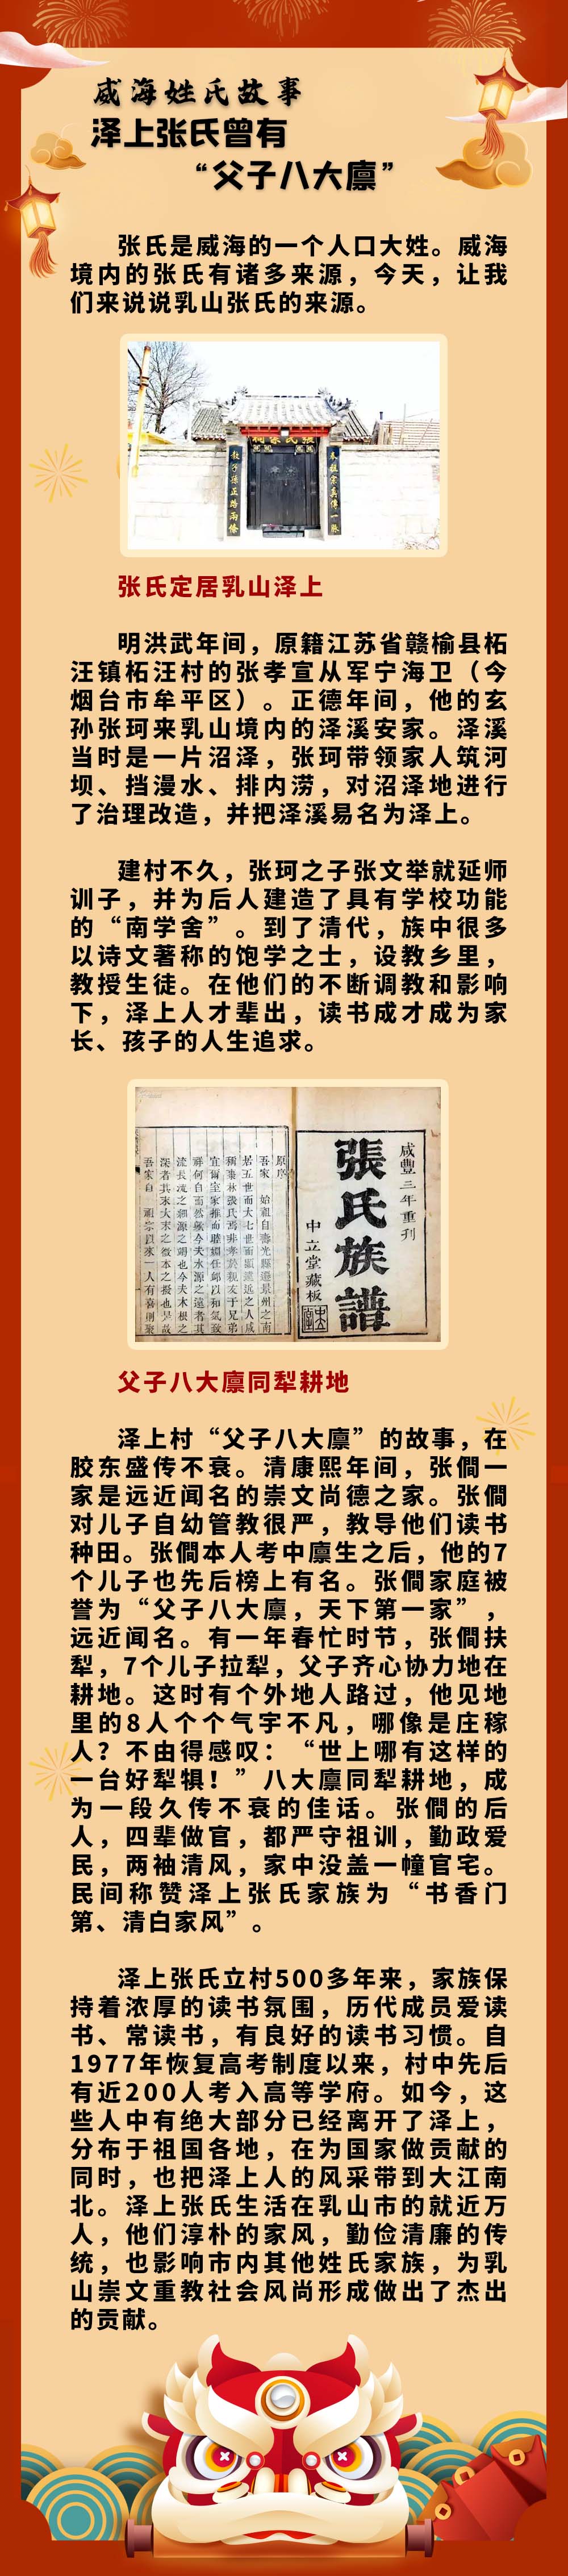 威海姓氏故事
泽上张氏曾有
“父子八大廪”
张氏是威海的一个人口大姓。威海
境内的张氏有诸多来源，今天，让我
们来说说乳山张氏的来源。
張氏家祠
教子孫正路兩條
本祖宗真傳一脈
张氏定居乳山泽上
明洪武年间，原籍江苏省赣榆县柘
汪镇柘汪村的张孝宣从军宁海卫（今
烟台市牟平区）。正德年间，他的玄
孙张珂来乳山境内的泽溪安家。泽溪
当时是一片沼泽，张珂带领家人筑河
坝、挡漫水、排内涝，对沼泽地进行
了治理改造，并把泽溪易名为泽上。
建村不久，张珂之子张文举就延师
训子，并为后人建造了具有学校功能
的“南学舍”。到了清代，族中很多
以诗文著称的饱学之士，设教乡里，
教授生徒。在他们的不断调教和影响
下，泽上人才辈出，读书成才成为家
长、孩子的人生追求。
咸豐三年重刊
張氏族譜
中立堂藏板
原序
父子八大廪同犁耕地
泽上村“父子八大廪”的故事，在
胶东盛传不衰。清康熙年间，张僩一
家是远近闻名的崇文尚德之家。张僩
对儿子自幼管教很严，教导他们读书
种田。张僩本人考中廪生之后，他的7
个儿子也先后榜上有名。张僩家庭被
誉为“父子八大廪，天下第一家”，
远近闻名。有一年春忙时节，张僩扶
犁，7个儿子拉犁，父子齐心协力地在
耕地。这时有个外地人路过，他见地
里的8人个个气宇不凡，哪像是庄稼
人？不由得感叹：“世上哪有这样的
一台好犁犋！”八大廪同犁耕地，成
为一段久传不衰的佳话。张僩的后
人，四辈做官，都严守祖训，勤政爱
民，两袖清风，家中没盖一幢官宅。
民间称赞泽上张氏家族为“书香门
第、清白家风”。
泽上张氏立村500多年来，家族保
持着浓厚的读书氛围，历代成员爱读
书、常读书，有良好的读书习惯。自
1977年恢复高考制度以来，村中先后
有近200人考入高等学府。如今，这
些人中有绝大部分已经离开了泽上，
分布于祖国各地，在为国家做贡献的
同时，也把泽上人的风采带到大江南
北。泽上张氏生活在乳山市的就近万
人，他们淳朴的家风，勤俭清廉的传
统，也影响市内其他姓氏家族，为乳
山崇文重教社会风尚形成做出了杰出
的贡献。